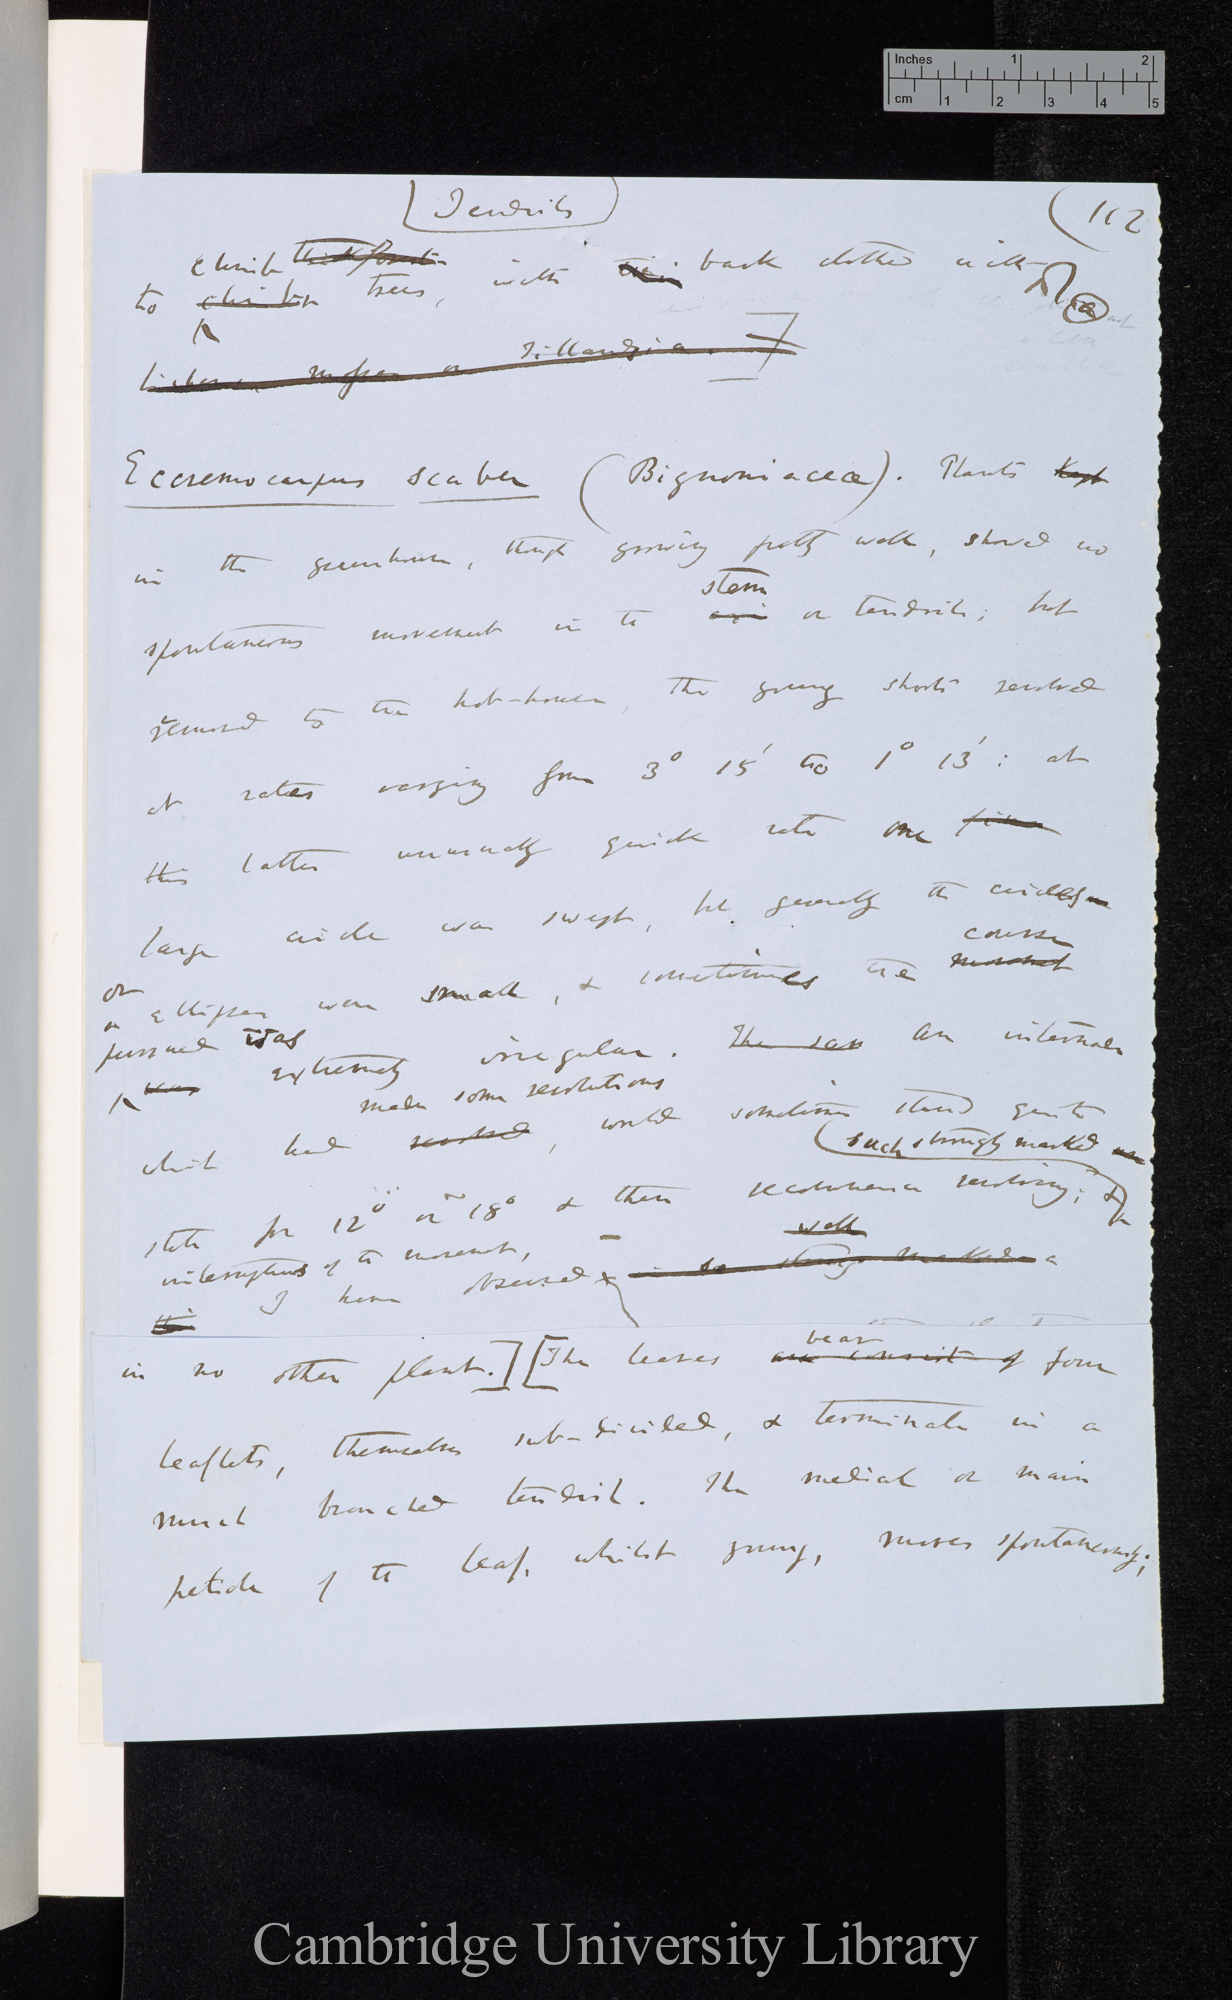 Inches 1 2
cm 1 2 3 4 5
(Tendrils)
(112
climb
to climber trees, with bark clothed with
(a)
Lichens, mosses or Tillandsia.]
Eccremocarpus scaber (Bignoniaceæ). Plants kept
in the greenhouse, though growing pretty well, showed no
stem
spontaneous movement in th axis or tendrils; but
removed to the hot-house, the young shoots revolved
at rates varying from 3° 15' to 1° 13': at
this latter unusually quick rate one fine
large circle was swept, but generally the circles
course
or ellipses were small, & sometimes the movement
pursued was
was extremely irregular. The sam An internode
made some revolutions
which had revolved, would sometimes stand quite
(such strongly marked
still for 12° or 18° & then recommence revolving; &
interruptions of th movement,
well
I have observed so strongly marked a
in no other plant.] [The leaves are consist of four
bear
leaflets, themselves sub-divided, & terminate in a
much branched tendril. The medial or main
petiole of th leaf, whilst young, moves spontaneously;
Cambridge University Library